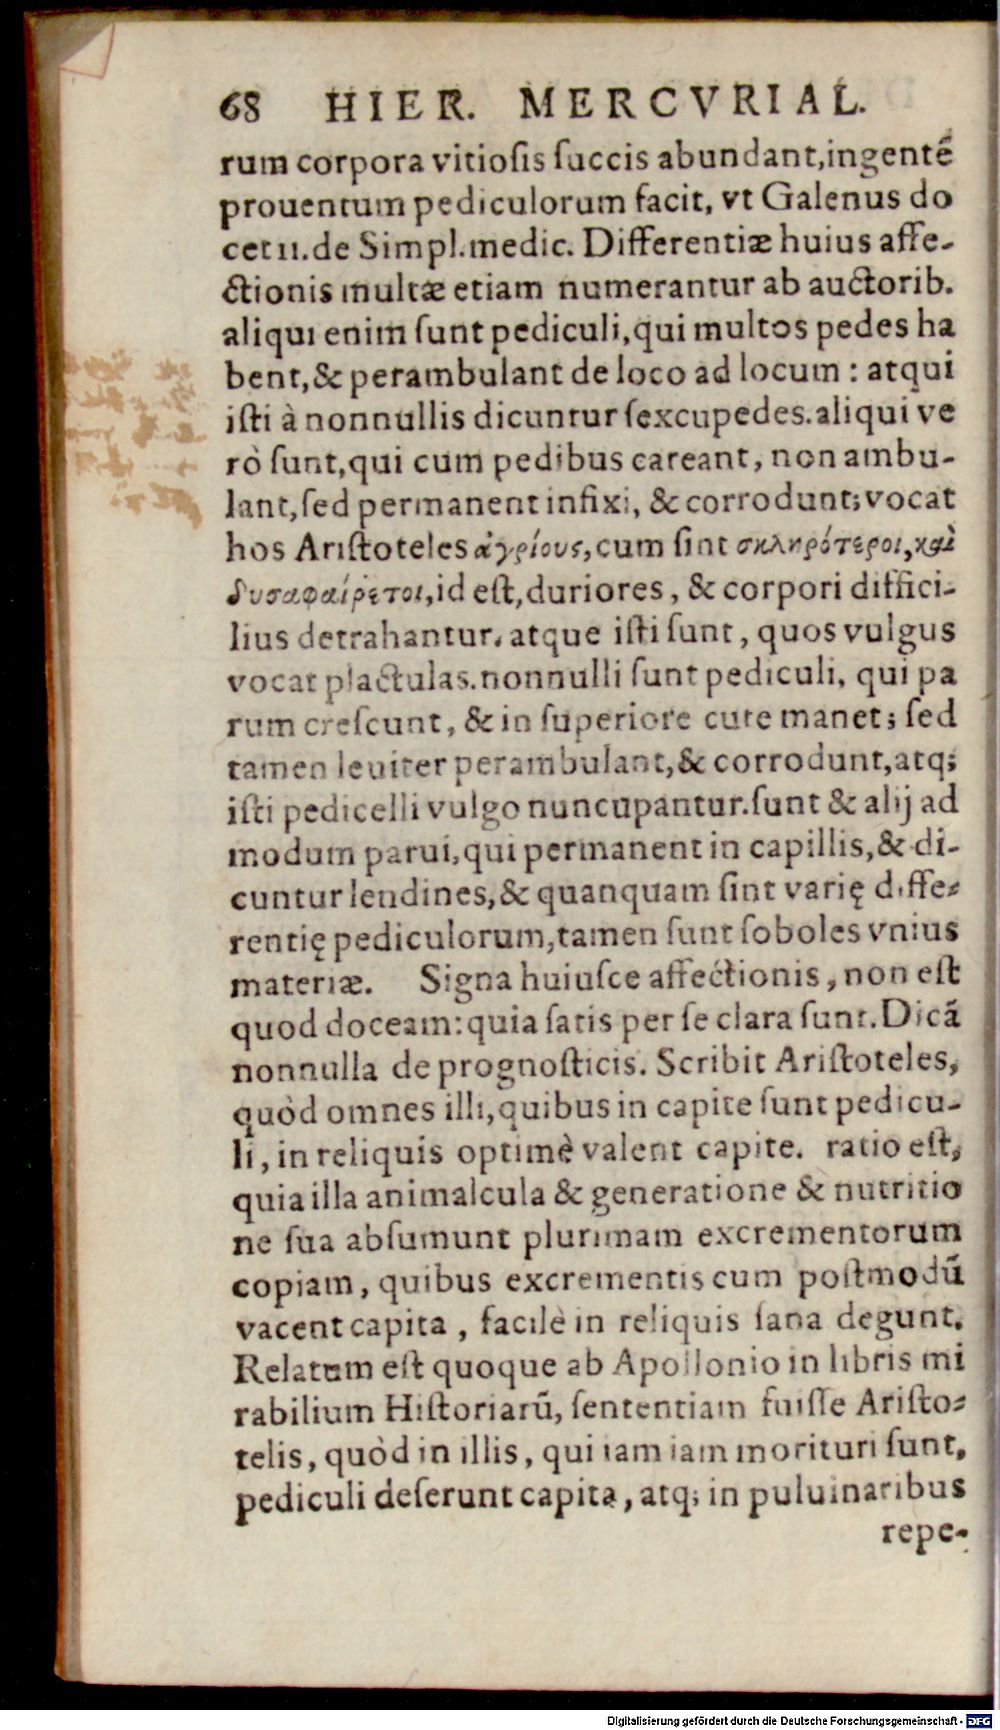 68 HIER. MERCVRIAL.
rum corpora vitiosis succis abundant,ingentẽ
prouentum pediculorum facit, vt Galenus do
cet 11.de Simpl.medic. Differentiæ huius affe-
ctionis multæ etiam numerantur ab auctorib.
aliqui enim sunt pediculi,qui multos pedes ha
bent,& perambulant de loco ad locum : atqui
isti à nonnullis dicuntur sexcupedes.aliqui ve
rò sunt,qui cum pedibus careant, non ambu-
lant,sed permanent infixi, & corrodunt;vocat
hos Aristoteles ἀγρίους,cum sint σκληρότεροι,καὶ
δυσαφαίρετοι,id est,duriores, & corpori diffici-
lius detrahantur. atque isti sunt, quos vulgus
vocat plactulas.nonnulli sunt pediculi, qui pa
rum crescunt, & in superiore cute manet; sed
tamen leuiter perambulant,& corrodunt,atq;
isti pedicelli vulgo nuncupantur.sunt & alij ad
modum parui,qui permanent in capillis,& di-
cuntur lendines,& quanquam sint varię diffe-
rentię pediculorum,tamen sunt soboles vnius
materiæ. Signa huiusce affectionis, non est
quod doceam:quia satis per se clara sunt.Dicã
nonnulla de prognosticis. Scribit Aristoteles,
quòd omnes illi,quibus in capite sunt pedicu-
li, in reliquis optimè valent capite. ratio est,
quia illa animalcula & generatione & nutritio
ne sua absumunt plurimam excrementorum
copiam, quibus excrementis cum postmodũ
vacent capita, facilè in reliquis sana degunt.
Relatum est quoque ab Apollonio in libris mi
rabilium Historiarũ, sententiam fuisse Aristo-
telis, quòd in illis, qui iam iam morituri sunt,
pediculi deserunt capita, atq; in puluinaribus
repe-
Digitalisierung gefördert durch die Deutsche Forschungsgemeinschaft - DFG